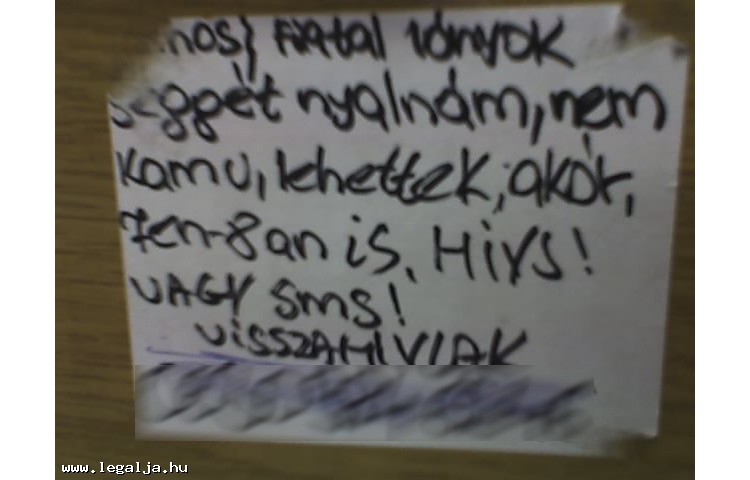 nos} fiatal lányok
seggét nyalnám, nem
kamu, lehettek, akár,
7en-8an is, HiVS!
VAGY SMS!
ViSSZAHIVLAK
www.legalja.hu